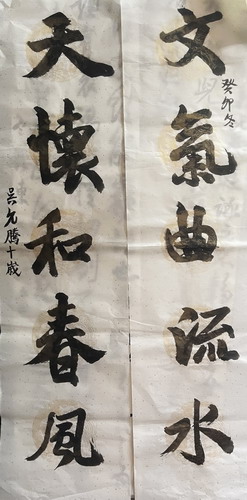 文氣曲流水
癸卯冬
天懷和春風
吴允騰十歲